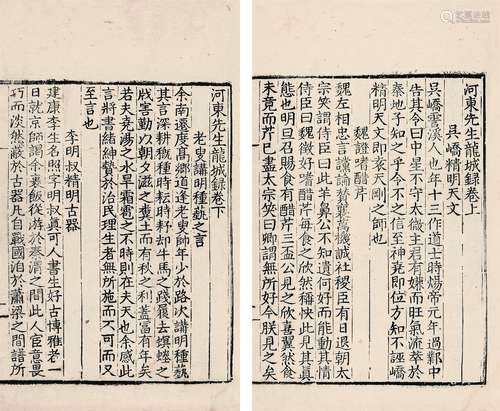 河東先生龍城録卷上
吳嶠精明天文
吳嶠霅溪人也年十三作道士時煬帝元年過鄴中
告其令曰中星不守太微主君有嫌而旺氣流萃於
秦地子知之乎令不之信至神堯即位方知不誣嶠
精明天文即袁天剛之師也
魏證嗜醋芹
魏左相忠言讜論贊襄萬機誠社稷臣有日退朝太
宗笑謂侍臣曰此羊鼻公不知遺何好而能動其情
侍臣曰魏徵好嗜醋芹每食之欣然稱快此見其真
態也明旦召賜食有醋芹三盃公見之欣喜翼然食
未竟而芹已盡太宗笑曰卿謂無所好今朕見之矣
河東先生龍城録卷下
老叟講明種蓺之言
余南遷度高鄉道逢老叟帥年少於路次講明種蓺
其言深耕穊種時耘時耔却牛馬之踐履去螟螣之
戕害勤以朝夕滋之糞土而有秋之利蓋富有年矣
若夫堯湯之水旱霜雹之不時則在夫天也余感此
言將書紳贊於治民理生者無所施而不可而又
至言也
李明叔精明古器
建康李生名照字明叔真可人書生好古博雅老一
日就京師謁余裹飯從游於秦渭之間此人宦意畏
巧而淡然悫於古器凡自戰國洎於蕭梁之間譜所